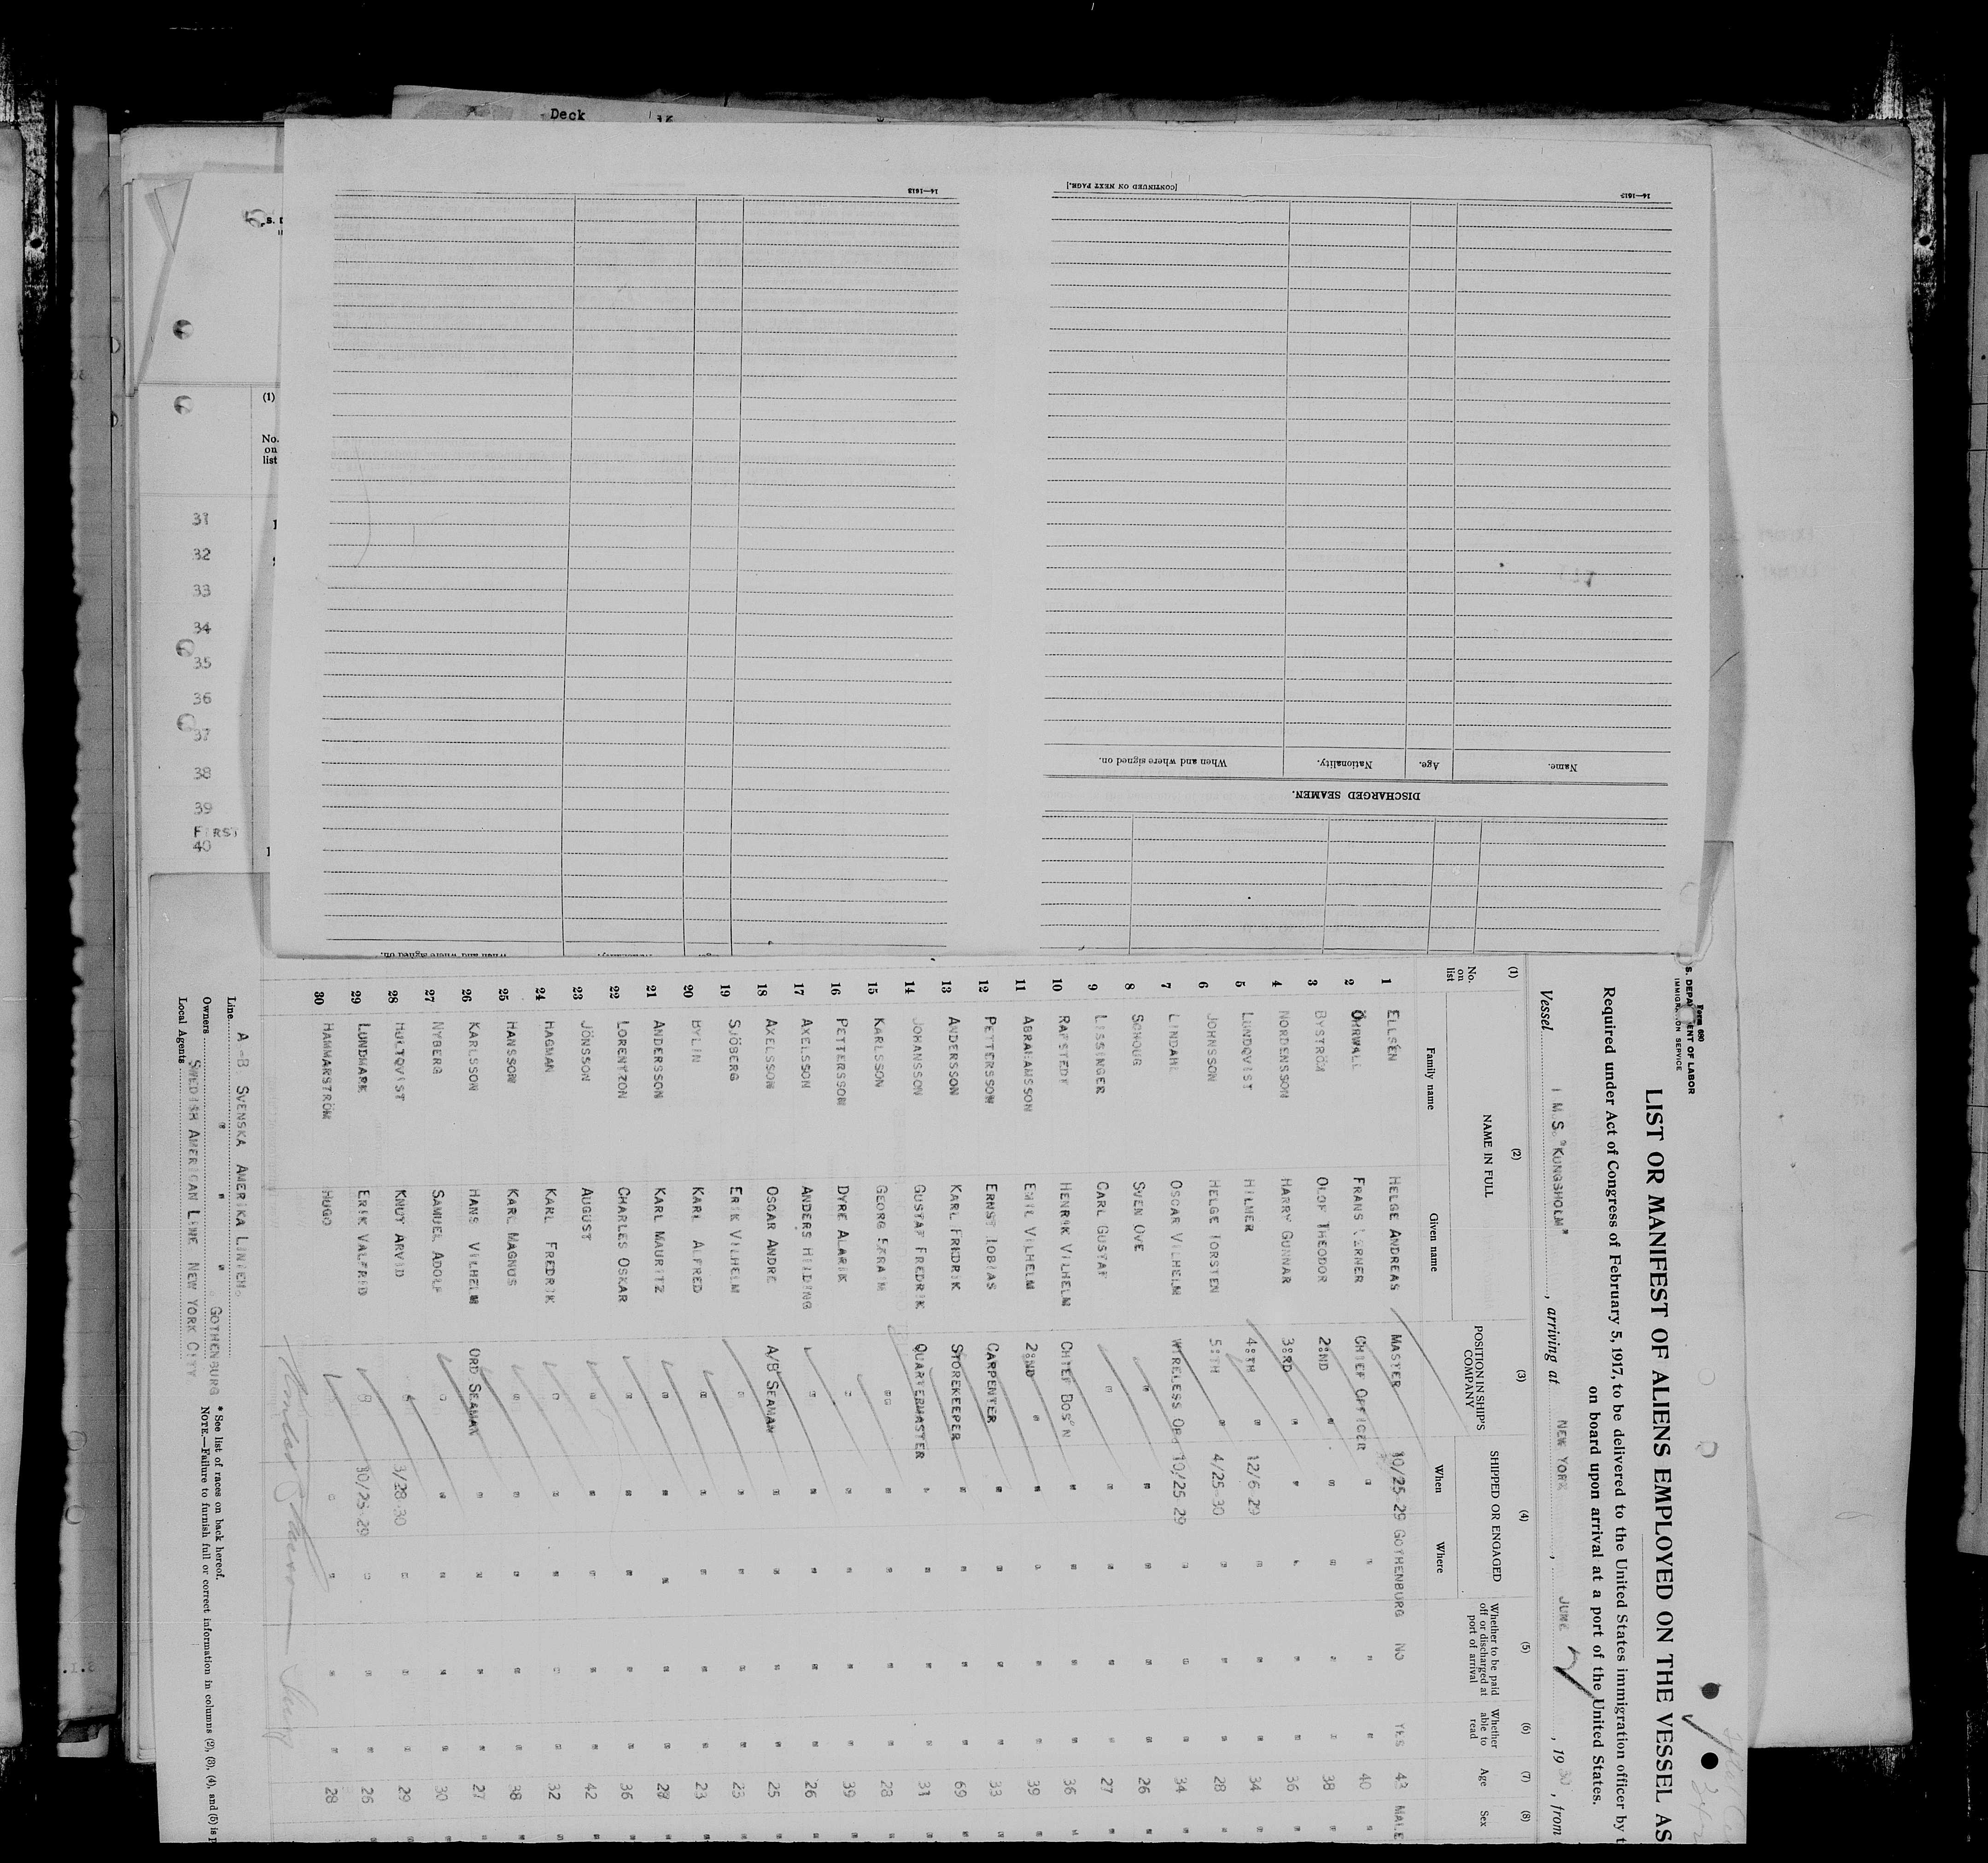 Deck
14—1613
[CONTINUED ON NEXT PAGE.]
14—1613
DISCHARGED SEAMEN.
Name.
Age.
Nationality.
When and where signed on.
When and where signed on.
(1)
No. on list
31
32
33
34
35
36
37
38
39
FIRST
40
Form 680
S. DEPARTMENT OF LABOR
IMMIGRATION SERVICE
LIST OR MANIFEST OF ALIENS EMPLOYED ON THE VESSEL AS
Required under Act of Congress of February 5, 1917, to be delivered to the United States immigration officer by t
on board upon arrival at a port of the United States.
Vessel M.S. "KUNGSHOLM", arriving at NEW YORK, JUNE, 1930, from
(1) (2) (3) (4) (5) (6) (7) (8)
No. on list NAME IN FULL POSITION IN SHIP'S COMPANY SHIPPED OR ENGAGED Whether to be paid off or discharged at port of arrival Whether able to read Age Sex
Family name Given name When Where
1 ELLSÉN HELGE ANDREAS MASTER 10/25 29 GOTHENBURG NO YES 43 MALE
2 ÖHRWALL FRANS VERNER CHIEF OFFICER " " " " 40 "
3 BYSTRÖM OLOF THEODOR 2:ND " " " " " 38 "
4 NORDENSSON HARRY GUNNAR 3:RD " " " " " 36 "
5 LUNDQVIST HILMER 4:TH " 12/6 29 " " " 34 "
6 JOHNSSON HELGE TORSTEN 5:TH " 4/25 30 " " " 28 "
7 LINDAHL OSCAR VILHELM WIRELESS OP. 10/25 29 " " " 34 "
8 SCHOUG SVEN OVE " " " " " 26 "
9 LISSINGER CARL GUSTAF " " " " " 27 "
10 RAFSTEDT HENRIK VILHELM CHIEF BOS'N " " " " 36 "
11 ABRAHAMSSON EMIL VILHELM 2:ND " " " " " 39 "
12 PETTERSSON ERNST TOBIAS CARPENTER " " " " 33 "
13 ANDERSSON KARL FRIDRIK STOREKEEPER " " " " 69 "
14 JOHANSSON GUSTAF FREDRIK QUARTERMASTER " " " " 31 "
15 KARLSSON GEORG EFRAIM " " " " " 28 "
16 PETTERSSON DYRE ALARIK " " " " " 39 "
17 AXELSSON ANDERS HILDING " " " " " 26 "
18 AXELSSON OSCAR ANDRE A/B SEAMAN " " " " 25 "
19 SJÖBERG ERIK VILHELM " " " " " 23 "
20 BYLIN KARL ALFRED " " " " " 23 "
21 ANDERSSON KARL MAURITZ " " " " " 28 "
22 LORENTZON CHARLES OSKAR " " " " " 36 "
23 JÖNSSON AUGUST " " " " " 42 "
24 HAGMAN KARL FREDRIK " " " " " 32 "
25 HANSSON KARL MAGNUS " " " " " 38 "
26 KARLSSON HANS VILHELM ORD SEAMAN " " " " 27 "
27 NYBERG SAMUEL ADOLF " " " " " 30 "
28 HULTQVIST KNUT ARVID " 3/28 30 " " " 29 "
29 LUNDMARK ERIK VALFRID " 10/25 29 " " " 26 "
30 HAMMARSTRÖM HUGO " " " " " 28 "
Line A-B SVENSKA AMERIKA LINIEN.
Owners " " " . GOTHENBURG
Local Agents SWEDISH AMERICAN LINE NEW YORK CITY
* See list of races on back hereof.
NOTE.—Failure to furnish full or correct information in columns (2), (3), (4), and (5) is p